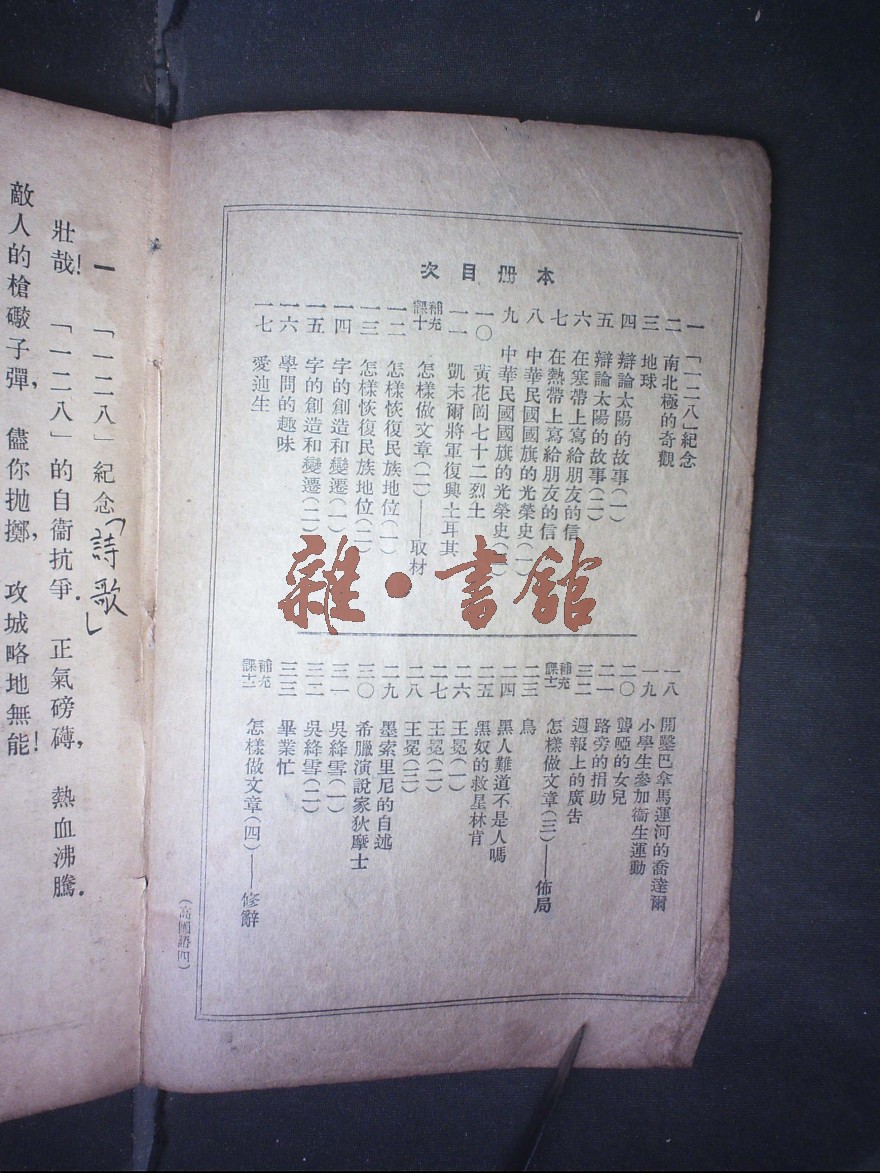 本册目次
一 「一二八」紀念
二 南北極的奇觀
三 地球
四 辯論太陽的故事(一)
五 辯論太陽的故事(二)
六 在寒帶上寫給朋友的信
七 在熱帶上寫給朋友的信
八 中華民國國旗的光榮史(一)
九 中華民國國旗的光榮史(二)
一〇 黃花岡七十二烈士
一一 凱末爾將軍復興土耳其
補充課十 怎樣做文章(二)——取材
一二 怎樣恢復民族地位(一)
一三 怎樣恢復民族地位(二)
一四 字的創造和變遷(一)
一五 字的創造和變遷(二)
一六 學問的趣味
一七 愛迪生
一八 開鑿巴拿馬運河的喬達爾
一九 小學生參加衞生運動
二〇 聾啞的女兒
二一 路旁的捐助
二二 週報上的廣告
補充課十一 怎樣做文章(三)——佈局
二三 鳥
二四 黑人難道不是人嗎
二五 黑奴的救星林肯
二六 王冕(一)
二七 王冕(二)
二八 王冕(三)
二九 墨索里尼的自述
三〇 希臘演說家狄摩士
三一 吳絳雪(一)
三二 吳絳雪(二)
三三 畢業忙
補充課十二 怎樣做文章(四)——修辭
(高國語四)
雜·書館
一 「一二八」紀念「詩歌」
壯哉!「一二八」的自衞抗爭.正氣磅礴,熱血沸騰.
敵人的槍礮子彈,儘你拋擲,攻城略地無能!